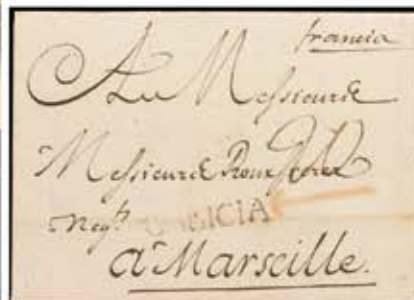 francia
A Messieurs
Messieurs Roux freres
Neg.ts GALICIA
a Marseille.